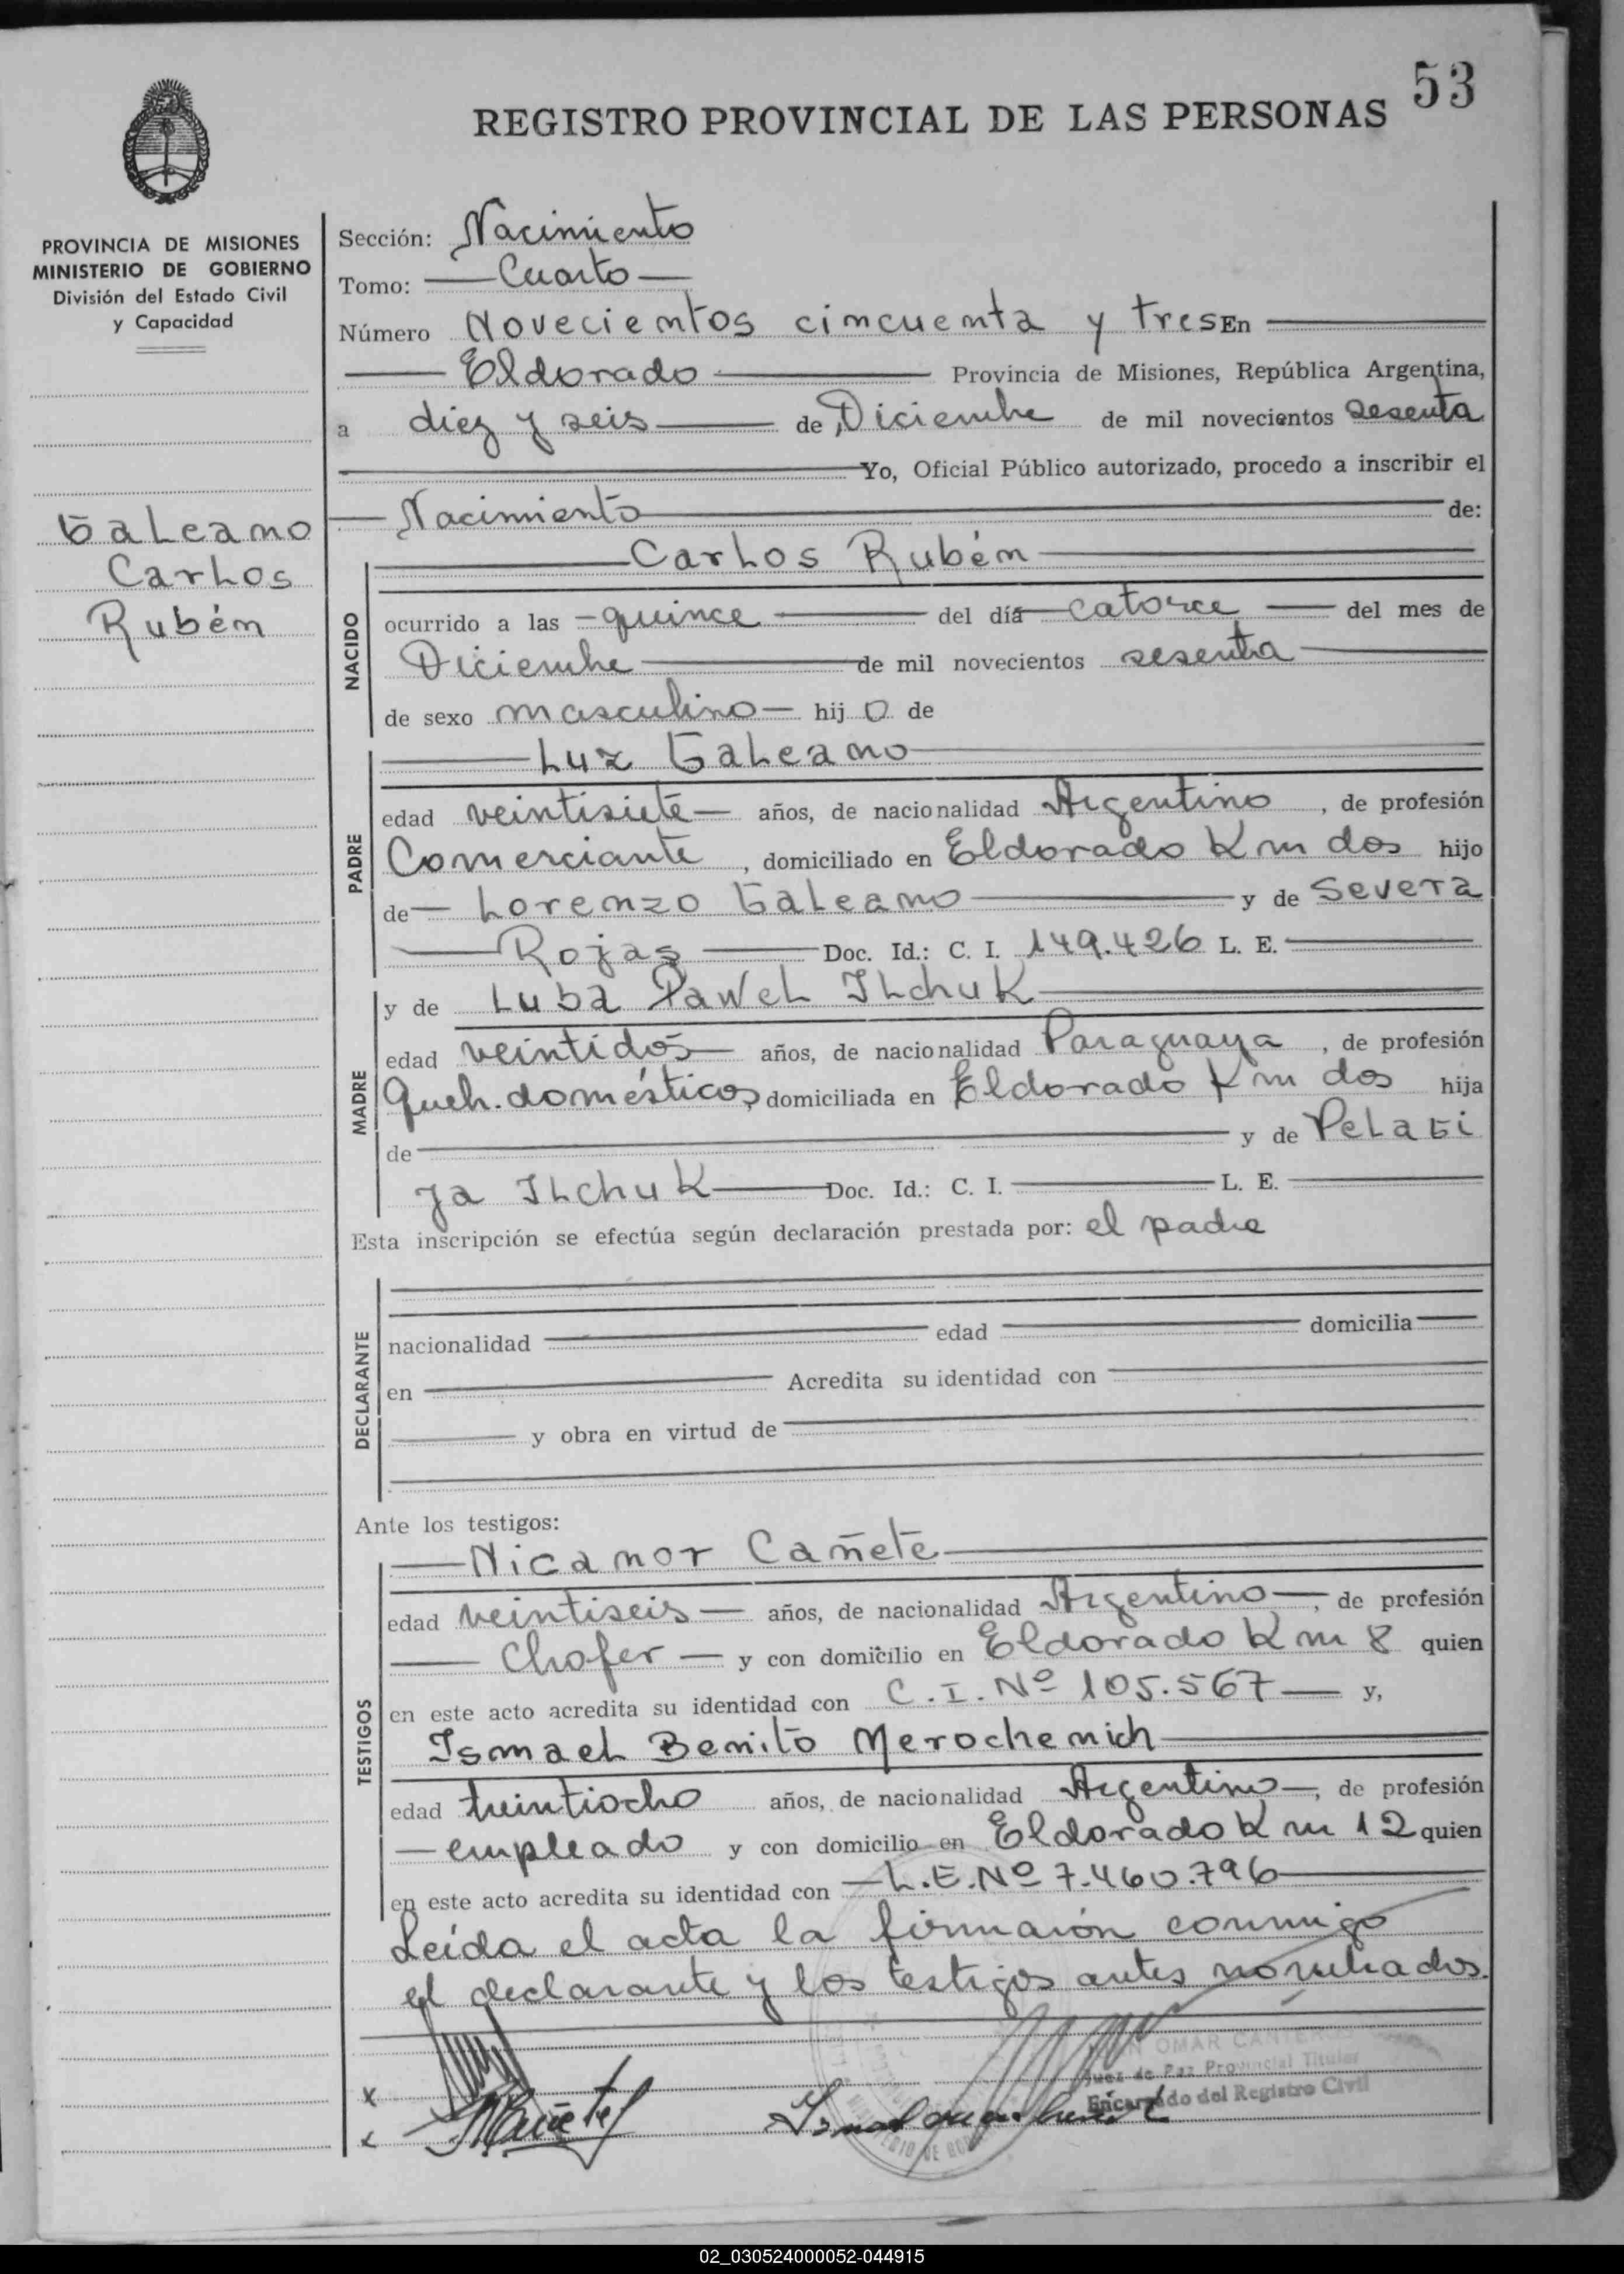 53
REGISTRO PROVINCIAL DE LAS PERSONAS
PROVINCIA DE MISIONES
MINISTERIO DE GOBIERNO
División del Estado Civil
y Capacidad
Galeano
Carlos
Rubén
Sección: Nacimiento
Tomo: Cuarto
Número Novecientos cincuenta y tres En
Eldorado Provincia de Misiones, República Argentina,
a diez y seis de Diciembre de mil novecientos sesenta
Yo, Oficial Público autorizado, procedo a inscribir el
Nacimiento de:
Carlos Rubén
NACIDO
ocurrido a las quince del día catorce del mes de
Diciembre de mil novecientos sesenta
de sexo masculino hij o de
Luz Galeano
PADRE
edad veintisiete años, de nacionalidad Argentino, de profesión
Comerciante, domiciliado en Eldorado Km dos hijo
de Lorenzo Galeano y de Severa
Rojas Doc. Id.: C. I. 149.426 L. E.
MADRE
y de Luba Pawel Ilchuk
edad veintidós años, de nacionalidad Paraguaya, de profesión
Queh. domésticos, domiciliada en Eldorado Km dos hija
de y de Pelagi
ja Ilchuk Doc. Id.: C. I. L. E.
Esta inscripción se efectúa según declaración prestada por: el padre
DECLARANTE
nacionalidad edad domicilia
en Acredita su identidad con
y obra en virtud de
Ante los testigos:
Nicanor Cañete
TESTIGOS
edad veintiseis años, de nacionalidad Argentino, de profesión
Chofer y con domicilio en Eldorado Km 8 quien
en este acto acredita su identidad con C.I. Nº 105.567 y,
Ismael Benito Merochenich
edad treintiocho años, de nacionalidad Argentino, de profesión
empleado y con domicilio en Eldorado Km 12 quien
en este acto acredita su identidad con L.E. Nº 7.460.796
Leída el acta la firmarón conmigo
el declarante y los testigos antes nombrados.
OMAR CANTEROS
Juez de Paz Provincial Titular
Encargado del Registro Civil
x
x
02_030524000052-044915